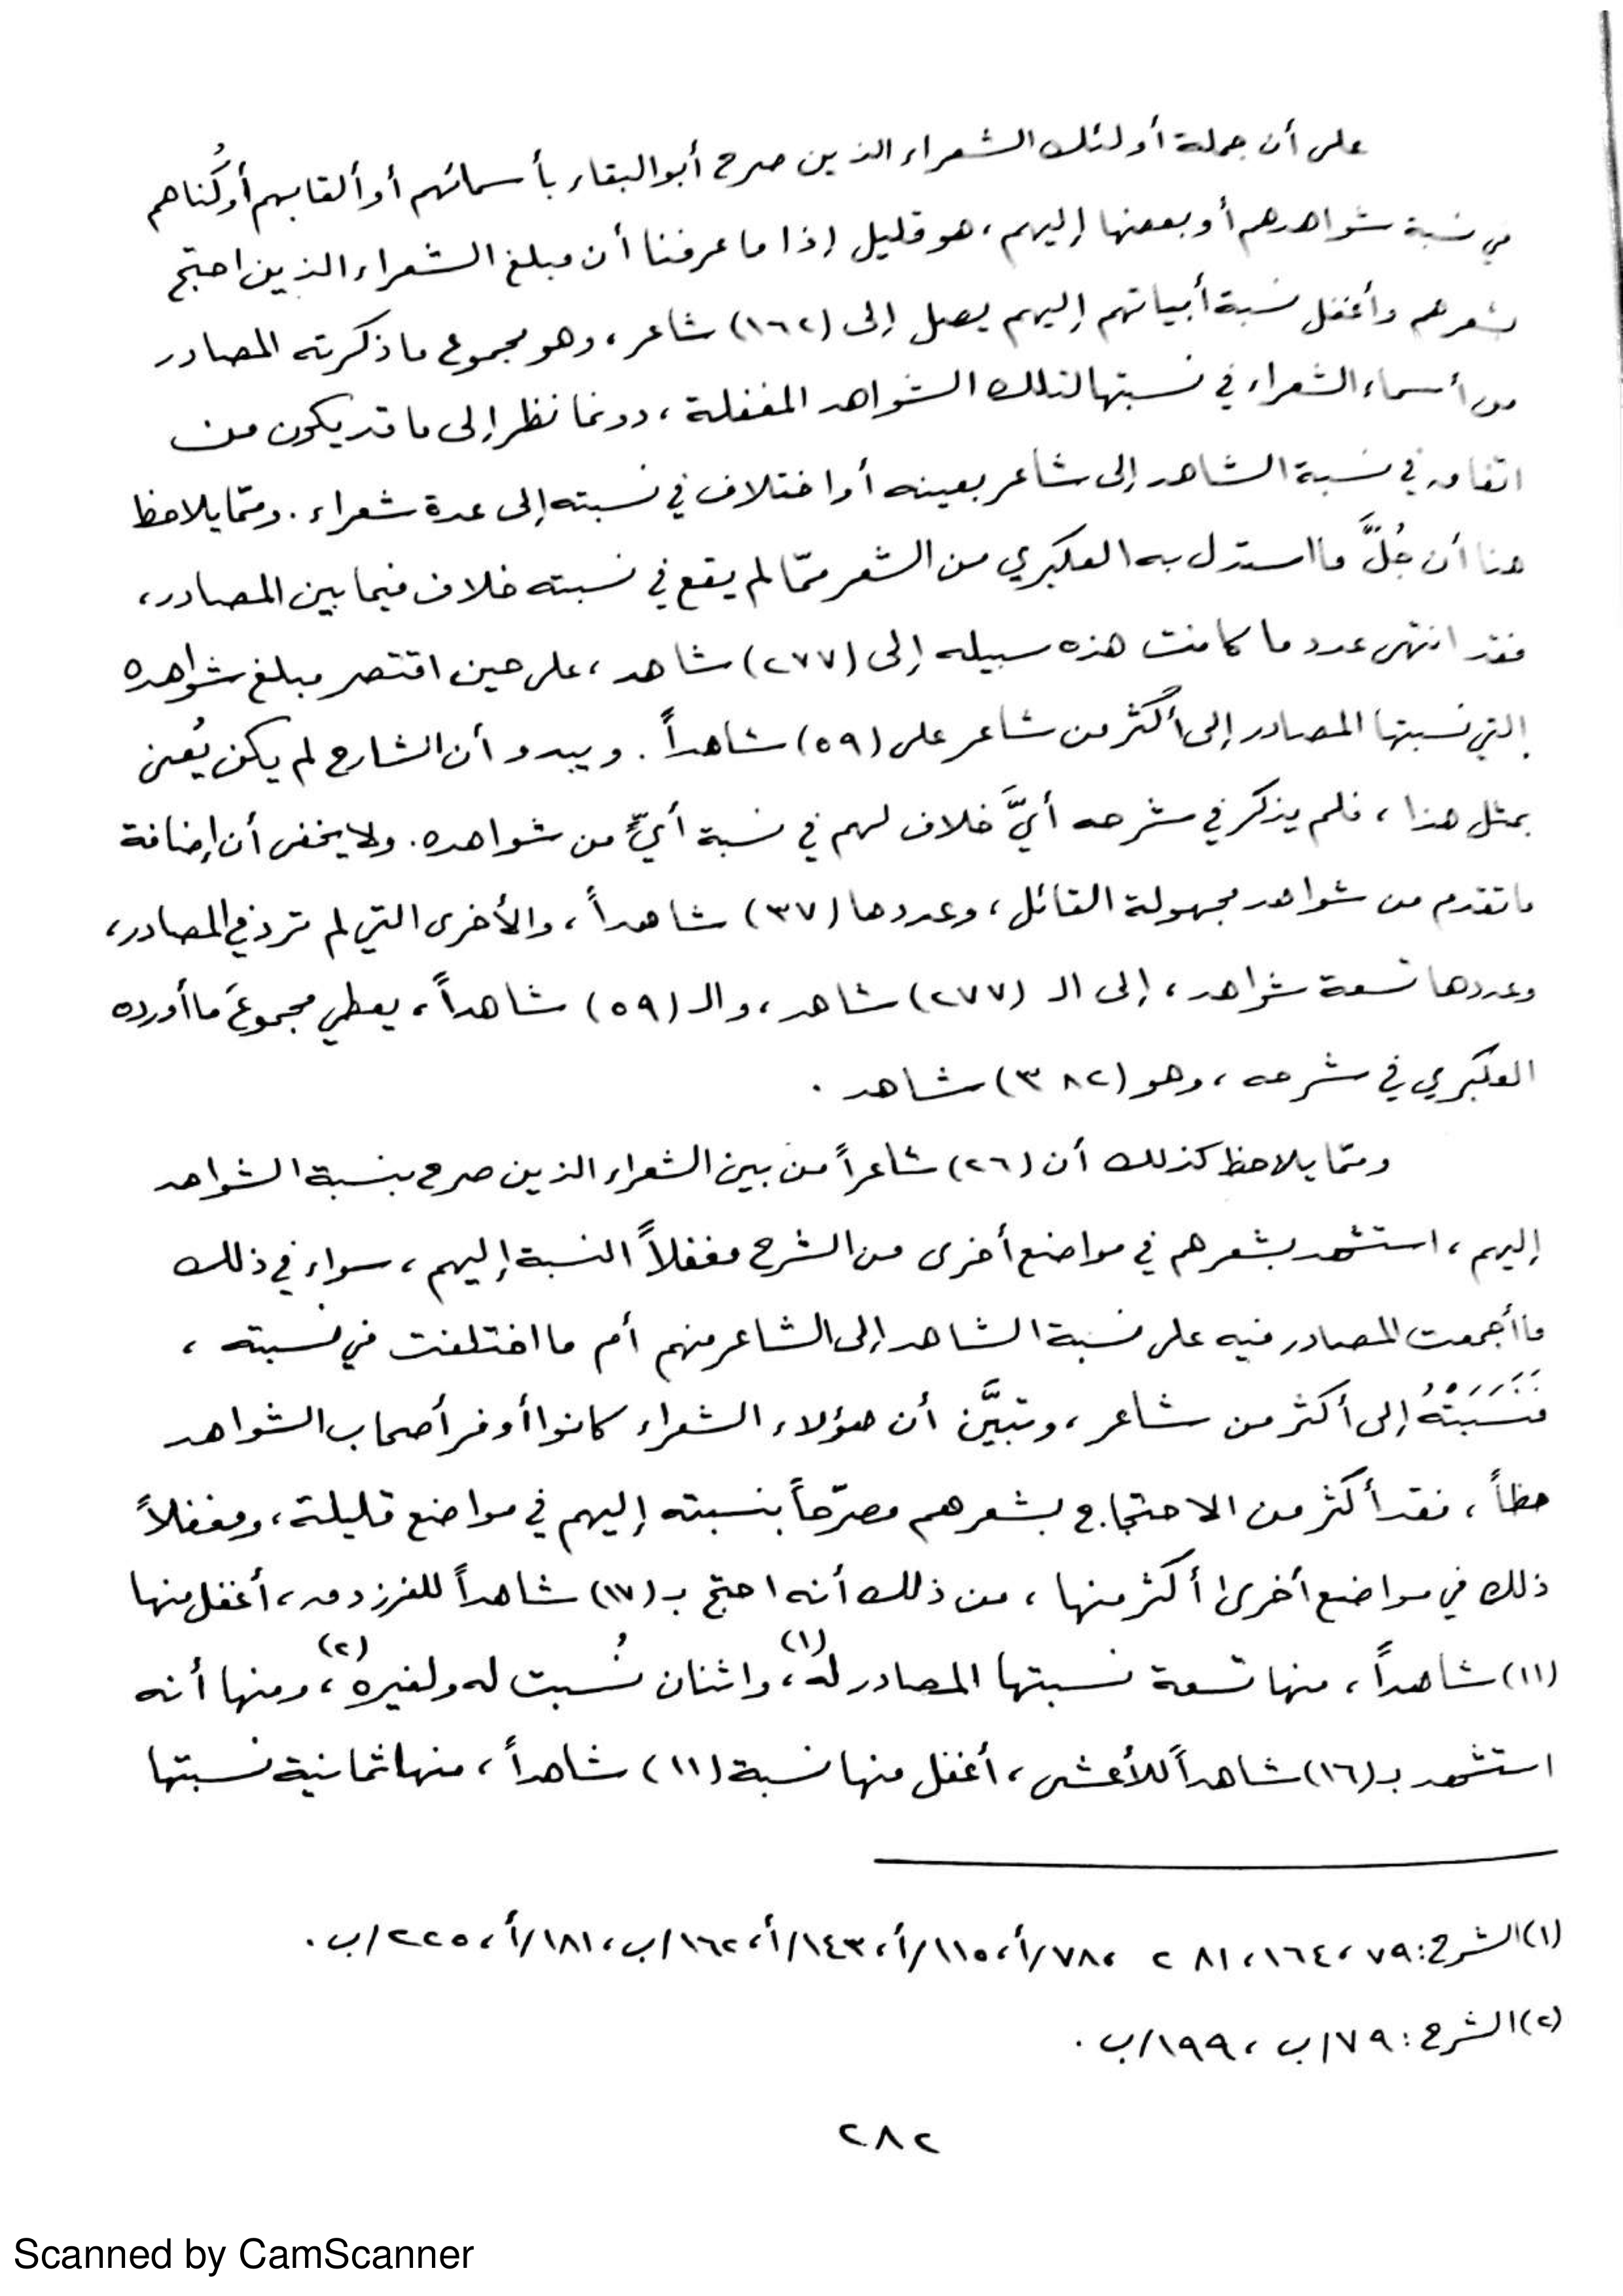 على أن جملة أولئك الشعراء الذين صرح أبو البقاء بأسمائهم أو ألقابهم أو كُناهم
في نسبة شواهدهم أو بعضها إليهم، هو قليل إذا ما عرفنا أن مبلغ الشعراء الذين احتج
بشعرهم وأغفل نسبة أبياتهم إليهم يصل إلى (١٦٢) شاعر، وهو مجموع ما ذكرته المصادر
من أسماء الشعراء في نسبتها لتلك الشواهد المغفلة، دونما نظر إلى ما قد يكون من
اتفاق في نسبة الشاهد إلى شاعر بعينه أو اختلاف في نسبته إلى عدة شعراء. وممّا يلاحظ
هنا أن جُلَّ ما استدل به العكبري من الشعر ممّا لم يقع في نسبته خلاف فيما بين المصادر،
فقد انتهى عدد ما كانت هذه سبيله إلى (٢٧٧) شاهد، على حين اقتصر مبلغ شواهده
التي نسبتها المصادر إلى أكثر من شاعر على (٥٩) شاهداً. ويبدو أن الشارح لم يكن يُعنى
بمثل هذا، فلم يذكر في شرحه أيَّ خلاف لهم في نسبة أيٍّ من شواهده. ولا يخفى أن إضافة
ما تقدم من شواهد مجهولة القائل، وعددها (٣٧) شاهداً، والأخرى التي لم ترد في المصادر،
وعددها تسعة شواهد، إلى الـ (٢٧٧) شاهد، والـ (٥٩) شاهداً، يعطي مجموعَ ما أورده
العكبري في شرحه، وهو (٣٨٢) شاهد.
وممّا يلاحظ كذلك أن (٢٦) شاعراً من بين الشعراء الذين صرح بنسبة الشواهد
إليهم، استشهد بشعرهم في مواضع أخرى من الشرح مغفلاً النسبة إليهم، سواء في ذلك
ما أجمعت المصادر فيه على نسبة الشاهد إلى الشاعر منهم أم ما اختلفت في نسبته،
فَنَسَبَتْهُ إلى أكثر من شاعر، وتبيَّن أن هؤلاء الشعراء كانوا أوفر أصحاب الشواهد
حظاً، فقد أكثر من الاحتجاج بشعرهم مصرّحاً بنسبته إليهم في مواضع قليلة، ومغفلاً
ذلك في مواضع أخرى أكثر منها، من ذلك أنه احتج بـ (١٧) شاهداً للفرزدق، أغفل منها
(١١) شاهداً، منها تسعة نسبتها المصادر له(١)، واثنان نُسبت له ولغيره(٢)، ومنها أنه
استشهد بـ (١٦) شاهداً للأعشى، أغفل منها نسبة (١١) شاهداً، منها ثمانية نسبتها
(١) الشرح: ٧٩، ١٦٤، ٢٨١، ٧٨/أ، ١١٥/أ، ١٤٣/أ، ١٦٢/ب، ١٨١/أ، ٢٢٥/ب.
(٢) الشرح: ٧٩/ب، ١٩٩/ب.
٢٨٢
Scanned by CamScanner